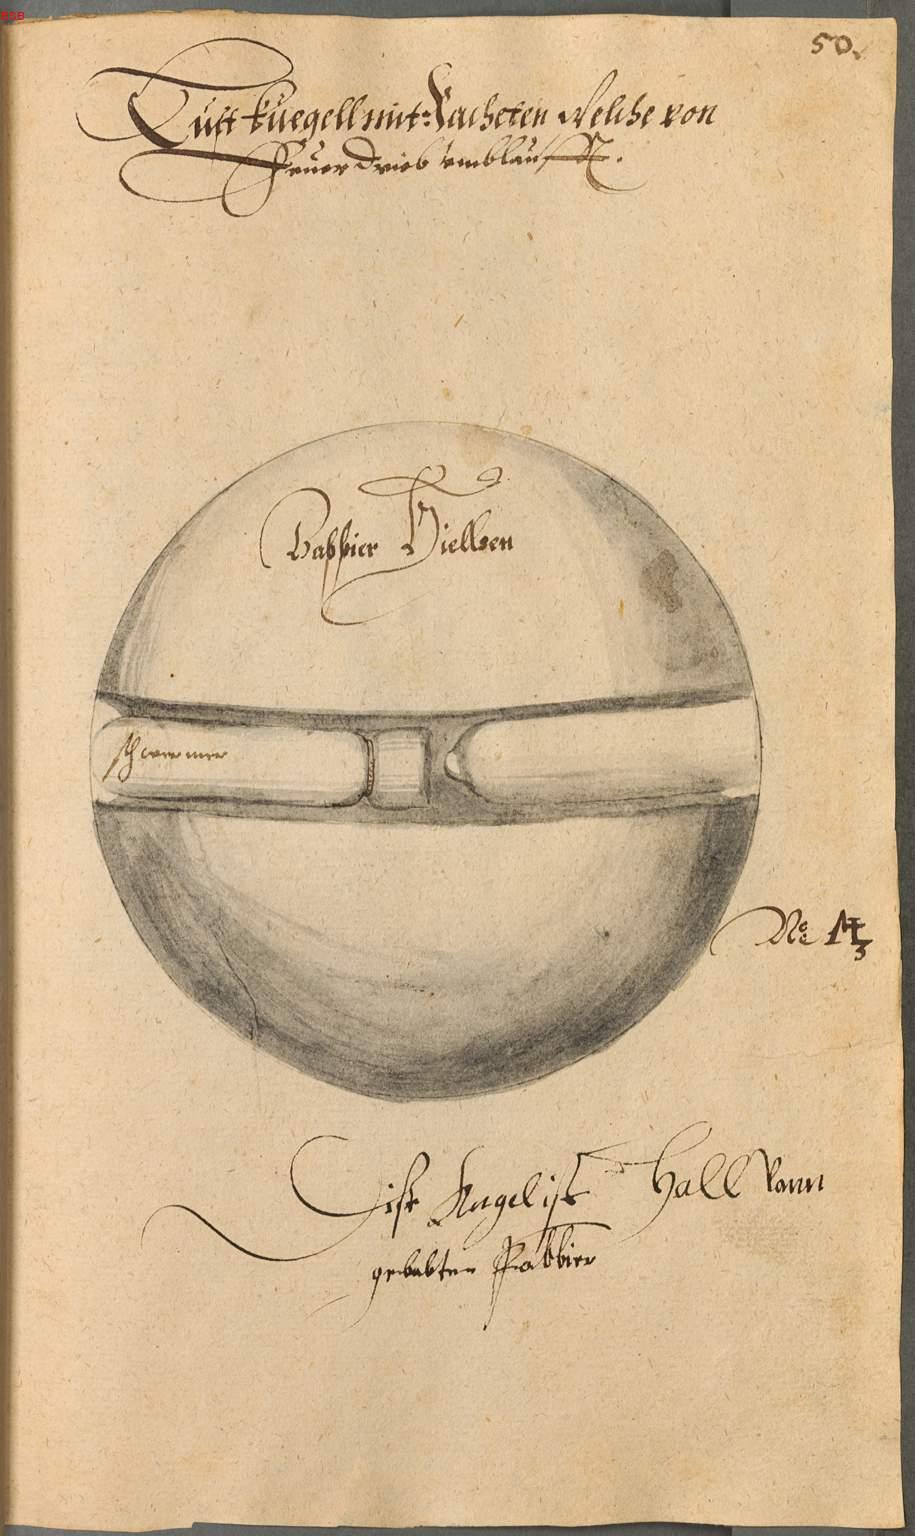 50.
Luft kuegell mit Racheten Welche von
Feuer Drieb vmblauff
Babbier Hielsen
schwermer
No:
Dise Kugel ist Hall Vonn
gebabten Pabbier